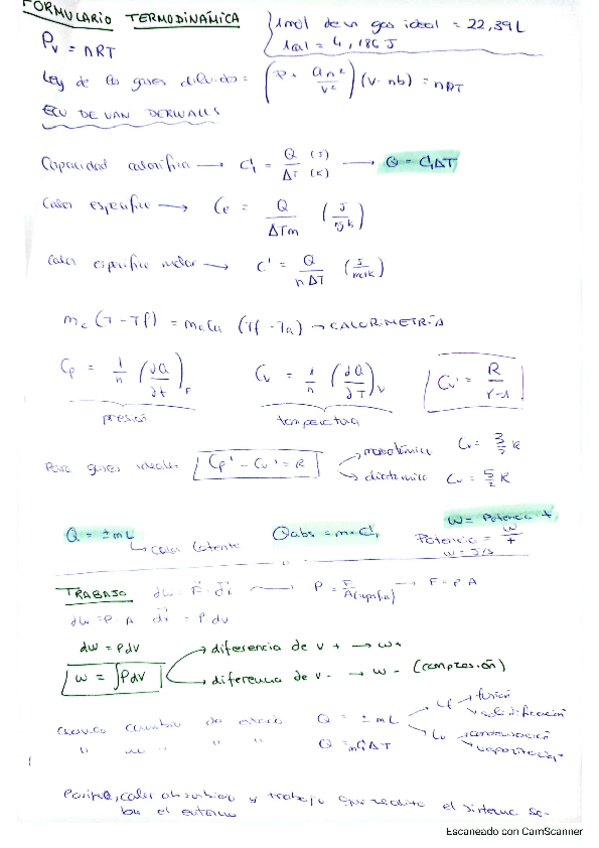 FORMULARIO TERMODINÁMICA
1 mol de un gas ideal = 22,39L
Pv = nRT
1cal = 4,186J
Ley de los gases diluidos = (P + an²/v²)(v - nb) = nRT
ECU DE VAN DERWALLS
Capacidad calorífica → C = Q (J) / ΔT (K) → Q = CΔT
Calor específico → Ce = Q / ΔTm
Calor específico molar → C' = Q / nΔT
(T - Tf) = (Tf - Ta) → CALORIMETRÍA
Cp = 1/n (dQ/dt) Cv = 1/n (dQ/dT)v Cv' = R/γ-1
presión temperatura
Para gases ideales Cp' - Cv' = R
monoatómico Cv = 3/2 R
diatómico Cv = 5/2 R
W = Potencia · t
Q = ± mL
Qabs =
Calor latente
Potencia = W/t
W = J/s
TRABAJO dw = F · P = F/A → F = P A
dw = P · A = P dv
dw = Pdv → diferencia de v + → w+
w = ∫Pdv → diferencia de v - → w - (compresión)
Cuando cambio de estado Q = ± mL
fusión
solidificación
condensación
vaporización
" " " Q = ΔT
calor absorbido y trabajo que realiza el sistema so-
bre el entorno
Escaneado con CamScanner